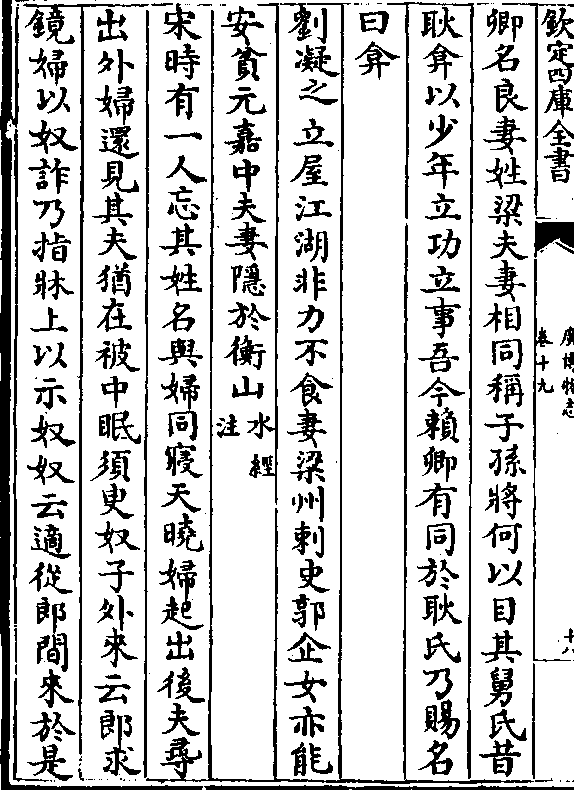 欽定四庫全書
廣博物志
卷十九
十八
卿名良妻姓梁夫妻相同稱子孫將何以目其舅氏昔
耿弇以少年立功立事吾今賴卿有同於耿氏乃賜名
曰弇
劉凝之立屋江湖非力不食妻梁州刺史郭企女亦能
安貧元嘉中夫妻隱於衡山水經注
宋時有一人忘其姓名與婦同寢天曉婦起出後夫尋
出外婦還見其夫猶在被中眠須臾奴子外來云郎求
鏡婦以奴詐乃指牀上以示奴奴云適從郎間來於是